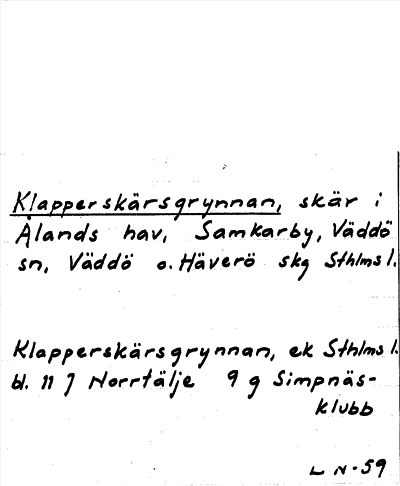 Klapperskärsgrynnan, skär i
Ålands hav, Samkarby, Väddö
sn, Väddö o. Häverö skg Sthlms l.
Klapperskärsgrynnan, ek Sthlms l.
bl. 11 J Norrtälje 9 g Simpnäs-
klubb
L N-59